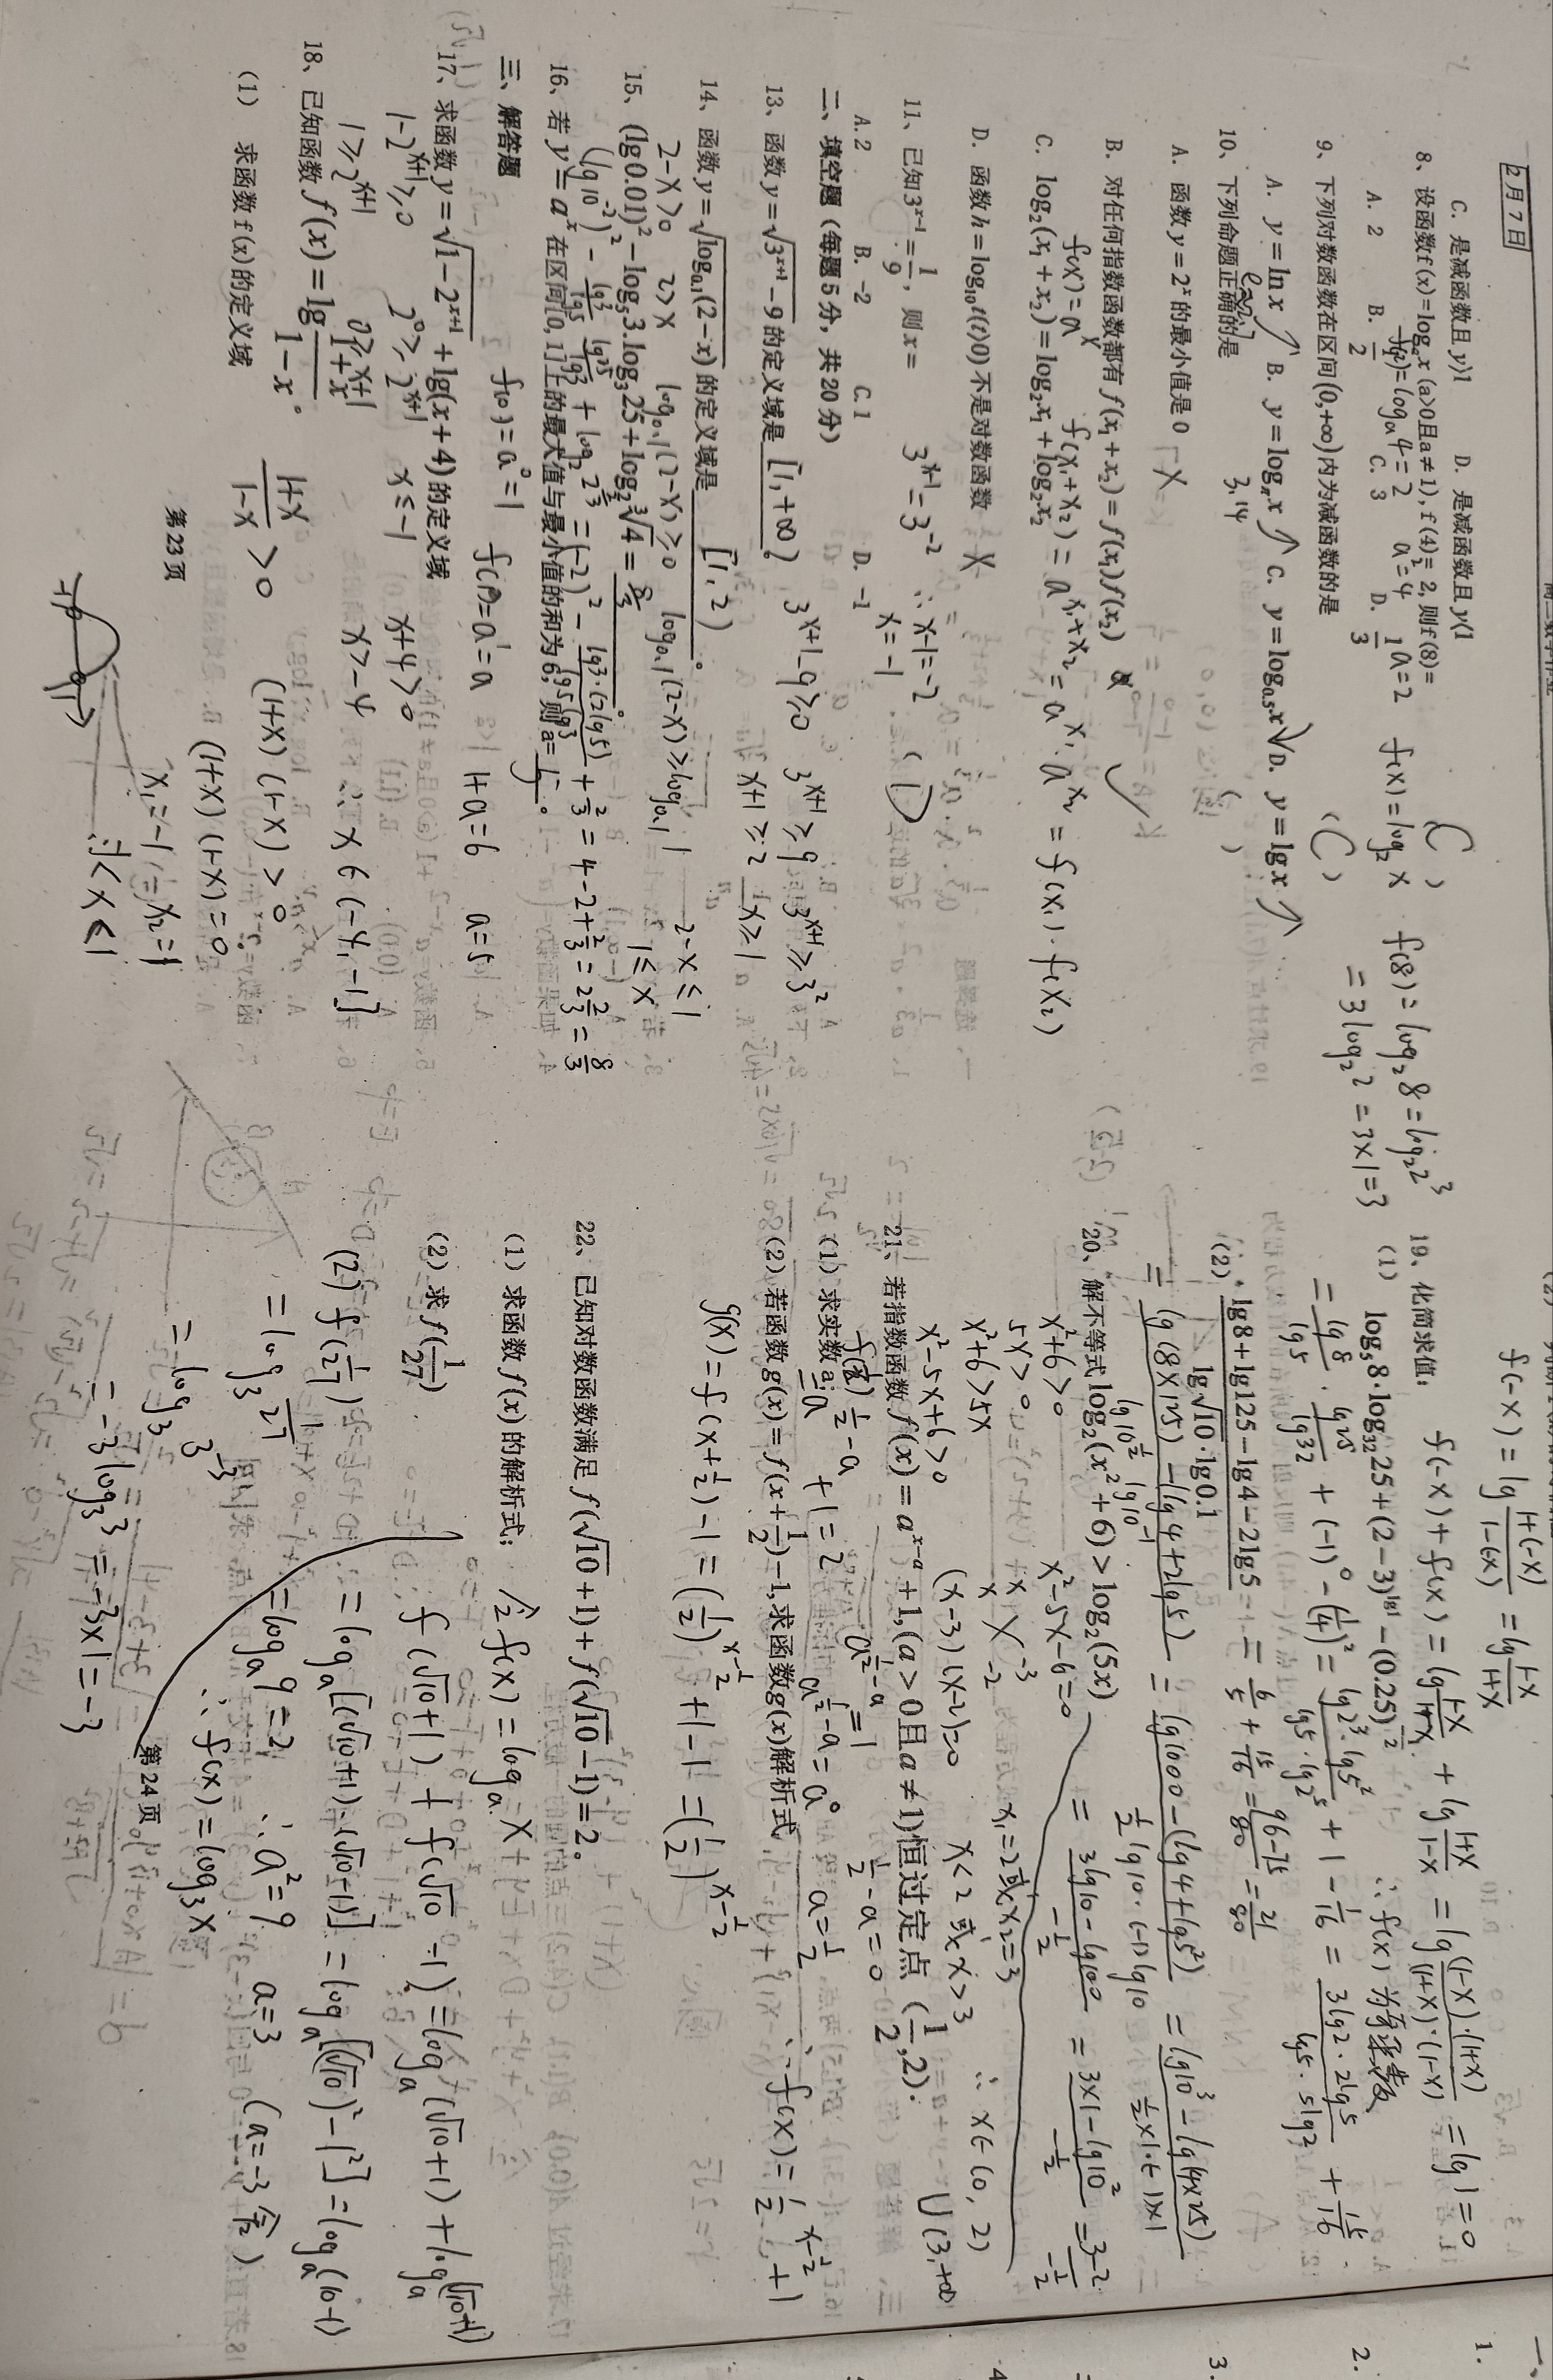 2月7日
C. 是减函数且y>1 D. 是减函数且y<1
8、设函数f(x)=logₐx (a>0且a≠1), f(4)=2, 则f(8)= ( C )
f(4)=logₐ4=2 a²=4 a=2 f(x)=log₂x f(8)=log₂8=log₂2³
A. 2 B. 1/2 C. 3 D. 1/3
=3log₂2=3×1=3
9、下列对数函数在区间(0,+∞)内为减函数的是 ( C )
A. y=lnx B. y=log_π x C. y=log₀.₅x D. y=lgx
3.14
10、下列命题正确的是 ( )
A. 函数y=2ˣ的最小值是0 X
B. 对任何指数函数都有 f(x₁+x₂)=f(x₁)f(x₂) ✓
f(x)=aˣ f(x₁+x₂)=a^(x₁+x₂)=a^x₁·a^x₂=f(x₁)·f(x₂)
C. log₂(x₁+x₂)=log₂x₁+log₂x₂
D. 函数h=log₁₀t(t>0)不是对数函数 X
11、已知3^(x-1)=1/9, 则x= ( D )
3^(x-1)=3^(-2) ∴x-1=-2
x=-1
A. 2 B. -2 C. 1 D. -1
二、填空题（每题5分，共20分）
13、函数y=√(3^(x+1)-9)的定义域是 [1,+∞)。
3^(x+1)-9≥0 3^(x+1)≥9 3^(x+1)≥3²
x+1≥2 x≥1
14、函数y=√(log₀.₁(2-x))的定义域是 [1,2)。
2-x>0 2>x log₀.₁(2-x)≥0 log₀.₁(2-x)≥log₀.₁1 2-x≤1
1≤x
15、(lg0.01)²-log₅3.log₃25+log₂∛4= 8/3。
(lg10⁻²)²-lg3/lg5·lg25/lg3+log₂2^(2/3)=(-2)²-lg3·(2lg5)/lg5·lg3+2/3=4-2+2/3=2 2/3=8/3
16、若y=aˣ在区间[0,1]上的最大值与最小值的和为6, 则a= 5。
f(0)=a⁰=1 f(1)=a¹=a 1+a=6 a=5
三、解答题
17、求函数y=√(1-2^(x+1))+lg(x+4)的定义域
1-2^(x+1)≥0 2⁰≥2^(x+1) x≤-1 x+4>0
1≥2^(x+1) 0≥x+1 x>-4 ∴x∈(-4,-1]
18、已知函数f(x)=lg (1+x)/(1-x)。
(1) 求函数f(x)的定义域
(1+x)/(1-x)>0 (1+x)(1-x)>0
(1+x)(1-x)=0
x₁=-1, x₂=1
∴-1<x<1
第23页
f(-x)=lg (1+(-x))/(1-(-x))=lg (1-x)/(1+x)
f(-x)+f(x)=lg (1-x)/(1+x)+lg (1+x)/(1-x)=lg (1-x)·(1+x)/(1+x)·(1-x)=lg1=0
∴f(x)为奇函数
19、化简求值：
(1) log₅8·log₃₂25+(2-3)^(lg1)-(0.25)^(-2)
=lg8/lg5·lg25/lg32+(-1)⁰-(1/4)²=lg2³·lg5²/lg5·lg2⁵+1-1/16=3lg2·2lg5/lg5·5lg2+15/16
=6/5+15/16=96-75/80=21/80
(2) (lg8+lg125-lg4-2lg5)/(lg√10·lg0.1)
lg10^(1/2) lg10⁻¹ 1/2lg10·(-1)lg10 1/2×1·(-1)×1
=lg(8×125)-(lg4+2lg5)=lg1000-(lg4+lg5²)=lg10³-lg(4×25)
=3lg10-lg100/-1/2=3×1-lg10²/-1/2=3-2/-1/2
20、解不等式log₂(x²+6)>log₂(5x)
x²+6>0 x²-5x-6=0
5x>0
x²+6>5x
x²-5x+6>0 (x-3)(x-2)>0 x₁=2或x₂=3
x<2或x>3 ∴x∈(0,2)∪(3,+∞
21、若指数函数f(x)=a^(x-a)+1,(a>0且a≠1)恒过定点(1/2,2).
(1) 求实数a；
f(1/2)=a^(1/2-a)+1=2 a^(1/2-a)=1 1/2-a=0
a^(1/2-a)=a⁰ a=1/2 ∴f(x)=1/2^(x-1/2)+1
(2) 若函数g(x)=f(x+1/2)-1,求函数g(x)解析式
g(x)=f(x+1/2)-1=(1/2)^(x-1/2)+1-1=(1/2)^(x-1/2)
22、已知对数函数满足f(√10+1)+f(√10-1)=2。
(1) 求函数f(x)的解析式；
令f(x)=logₐx
f(√10+1)+f(√10-1)=logₐ(√10+1)+logₐ(√10+1)
(2) 求f(1/27)
=logₐ[(√10+1)·(√10+1)]=logₐ[(√10)²-1²]=logₐ(10-1)
=logₐ9=2 ∴a²=9 a=3 (a=-3舍)
∴f(x)=log₃x
(2) f(1/27)
=log₃1/27
=log₃3⁻³
=-3log₃3=-3×1=-3
第24页
1.
2.
3.